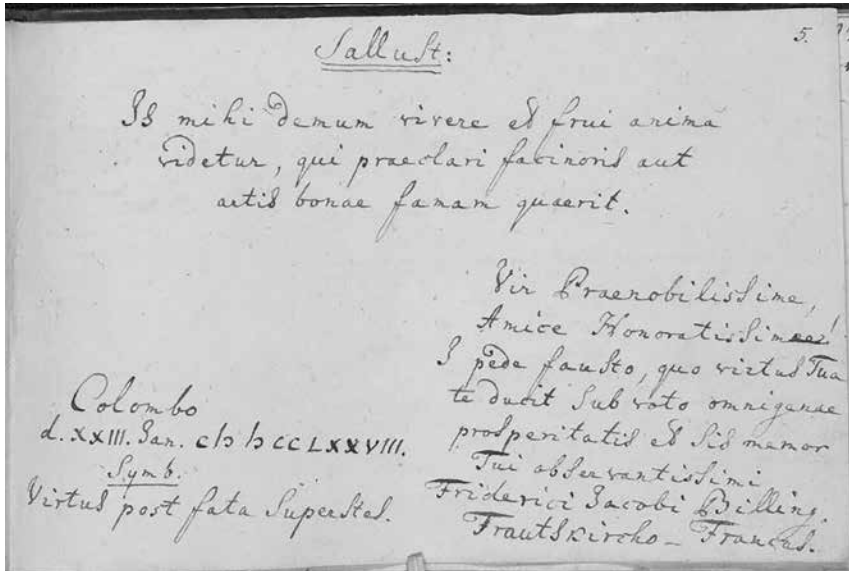 5.
Sallust:
Is mihi demum vivere et frui anima
videtur, qui praeclari facinoris aut
artis bonae famam quaerit.
Vir Praenobilissime,
Amice Honoratissime!
I pede fausto, quo virtus Tua
te ducit sub voto omnigenae
prosperitatis et sis memor
Tui observantissimi
Friderici Jacobi Billing,
Trautskircho - Francus.
Colombo
d. XXIII. Jan. cIɔ Iɔ CC LXXVIII.
Symb.
Virtus post fata Superstes.